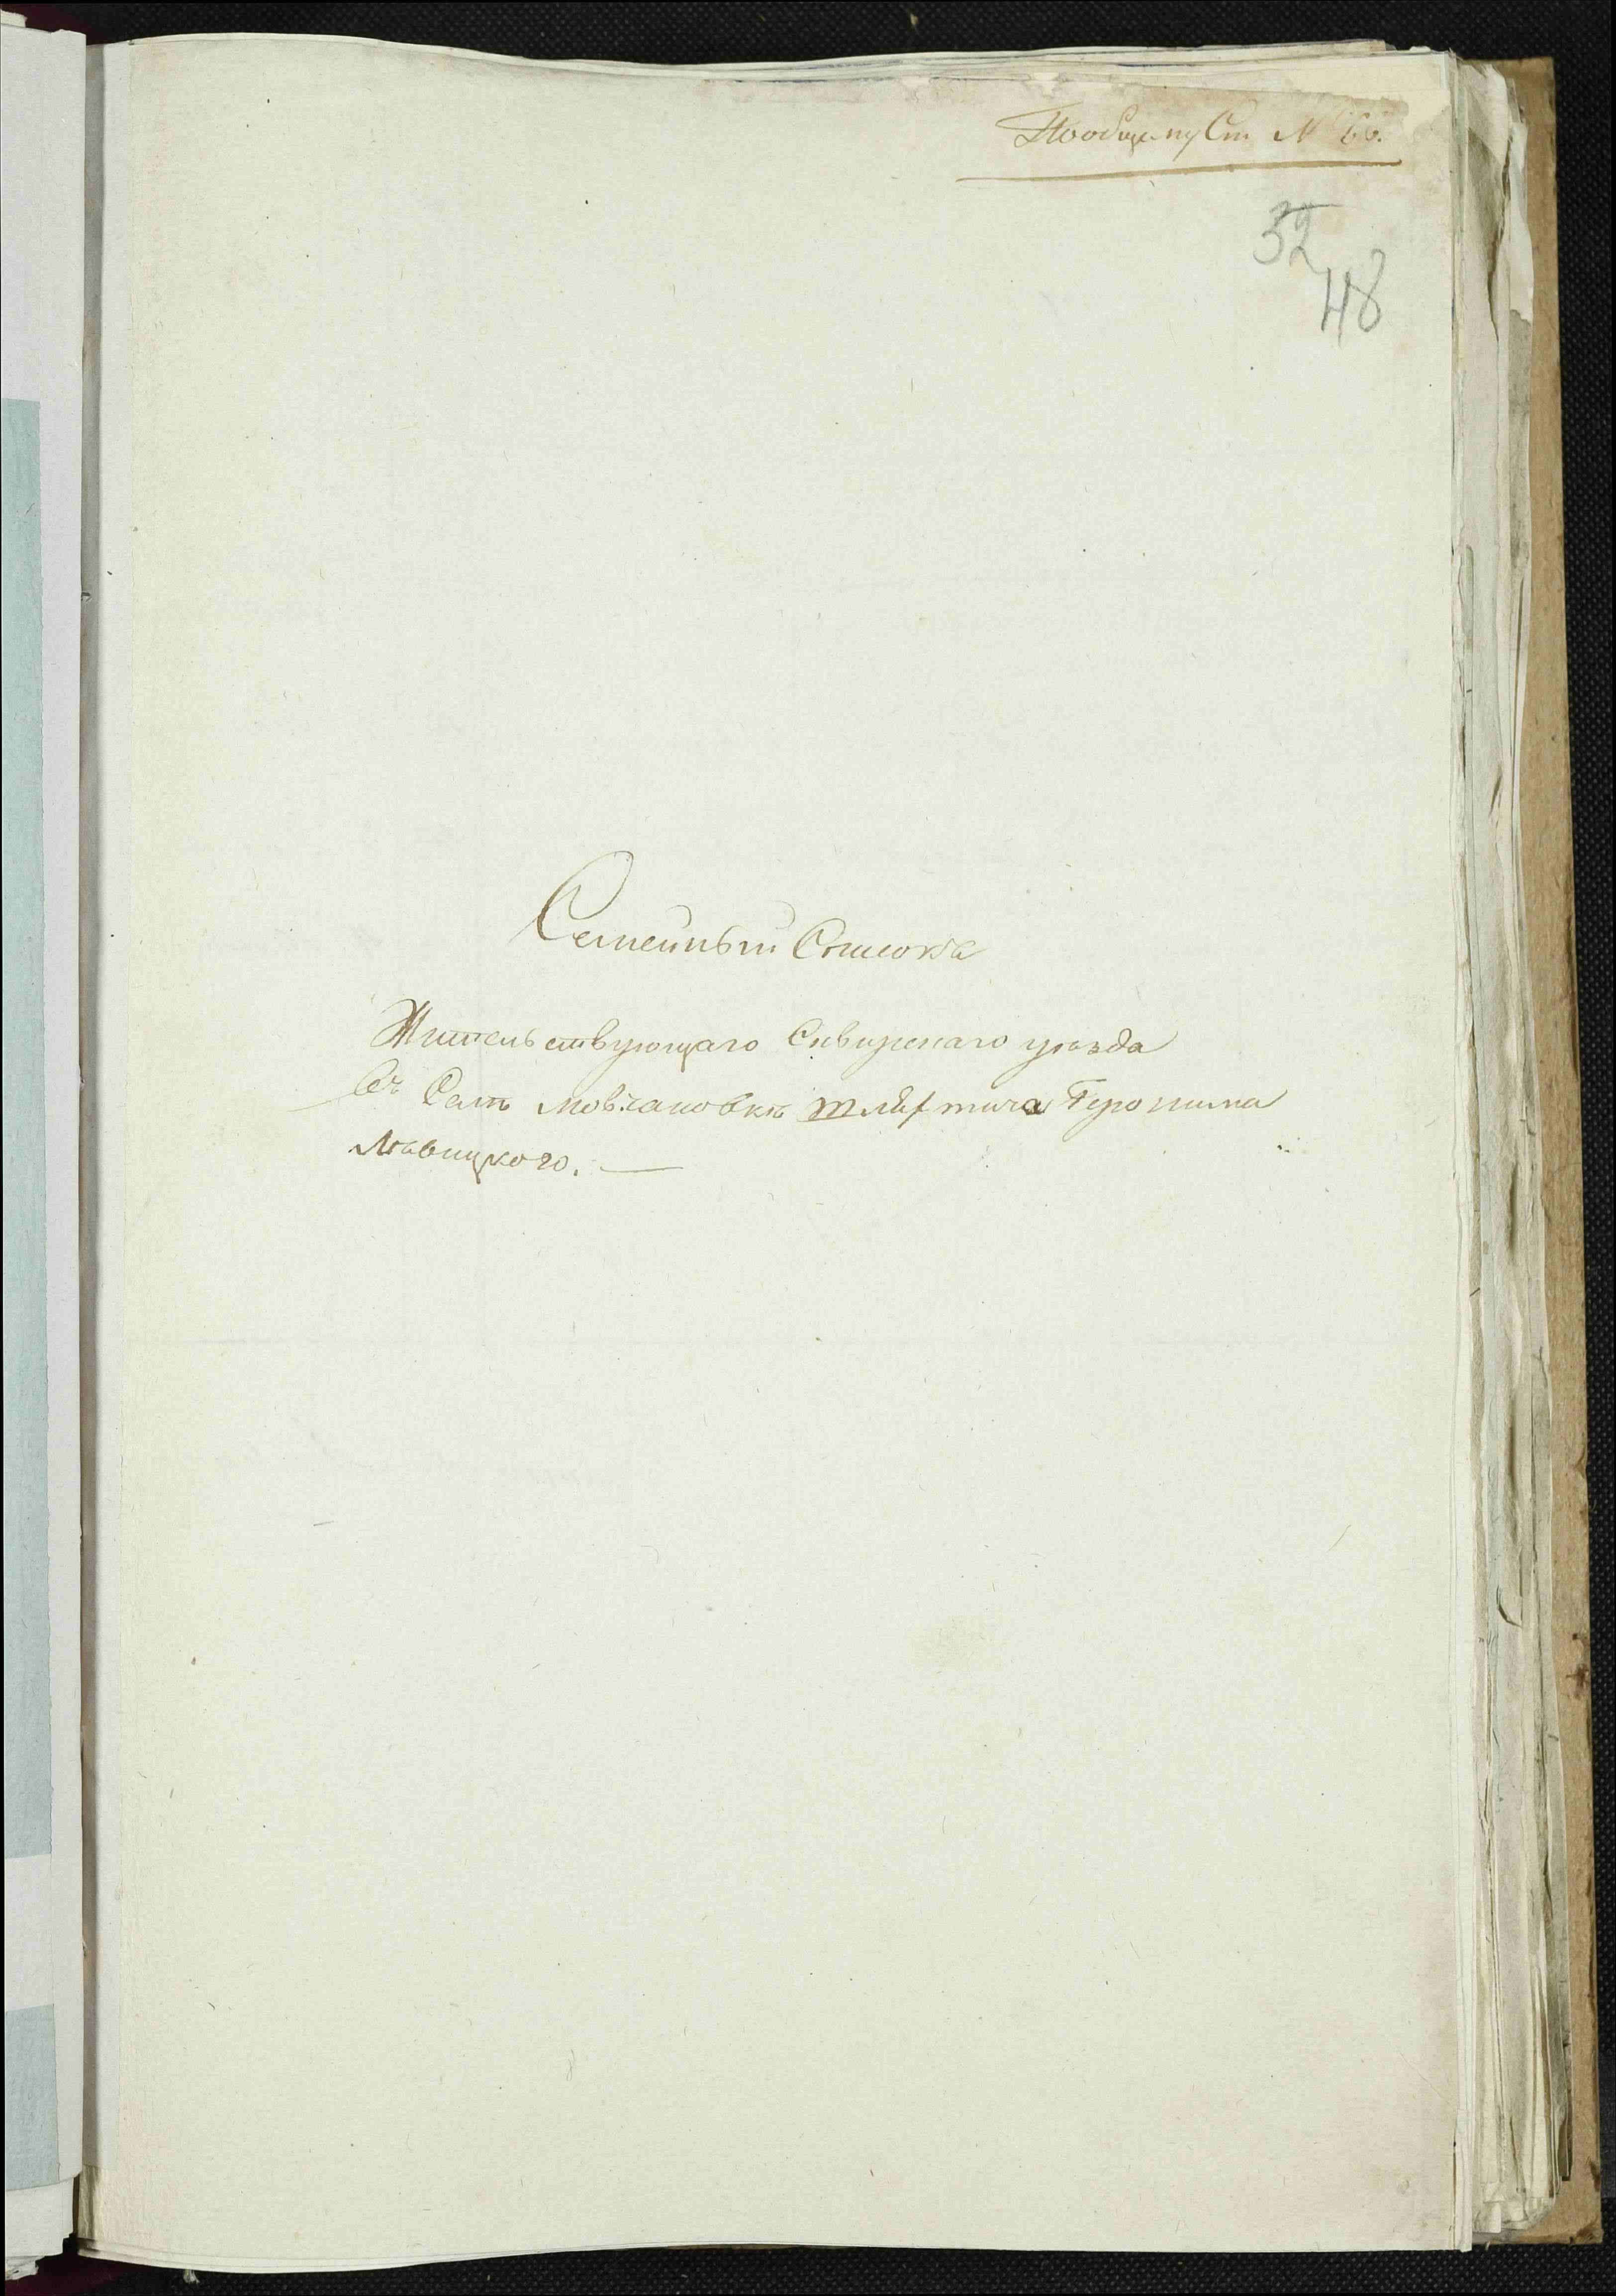 Пообщему Сп. № 66.
32
48
Семейный Списокъ
Жительствующаго Сквирскаго уѣзда
Въ Селѣ Мовчановкѣ шляхтича Геронима
Левицкого.